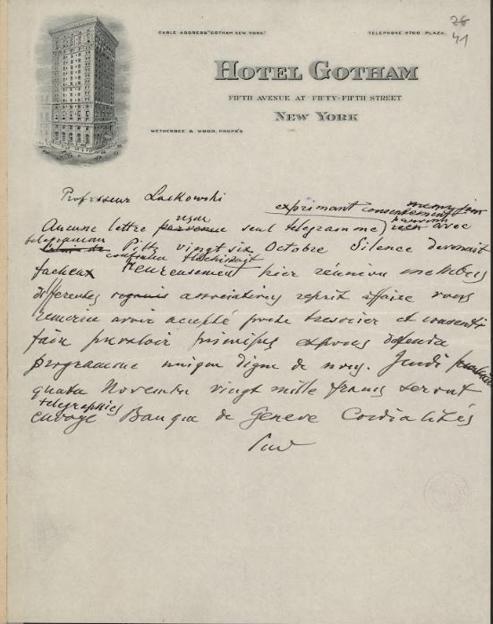 28
41
CABLE ADDRESS "GOTHAM NEW YORK"
TELEPHONE 2700 PLAZA.
HOTEL GOTHAM
FIFTH AVENUE AT FIFTY-FIFTH STREET
NEW YORK
WETHERBEE & WOOD, PROP'S
Professeur Laskowski
exprimant consentement
Aucune lettre parvenue seul telegramme) avec
telegramme Pitts vingt six Octobre Silence devenait
confiance flechissait
facheux Heureusement hier réunion membres
differentes associations reprit affaire vous
remercie avoir accepté poste tresorier et consenti
fair prevaloir principes exposés
programme unique digne de nous. Jeudi
quatre Novembre vingt mille francs seront
telegraphiés
envoyé Banque de Geneve Cordialités